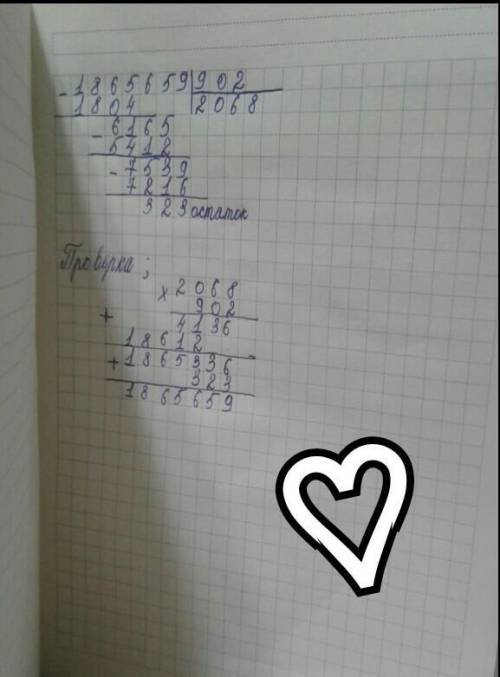 -1865659|902
1804 |2068
-6165
5412
-7539
7216
323 остаток
Проверка;
×2068
902
+ 4136
18612
+1865336
323
1865659